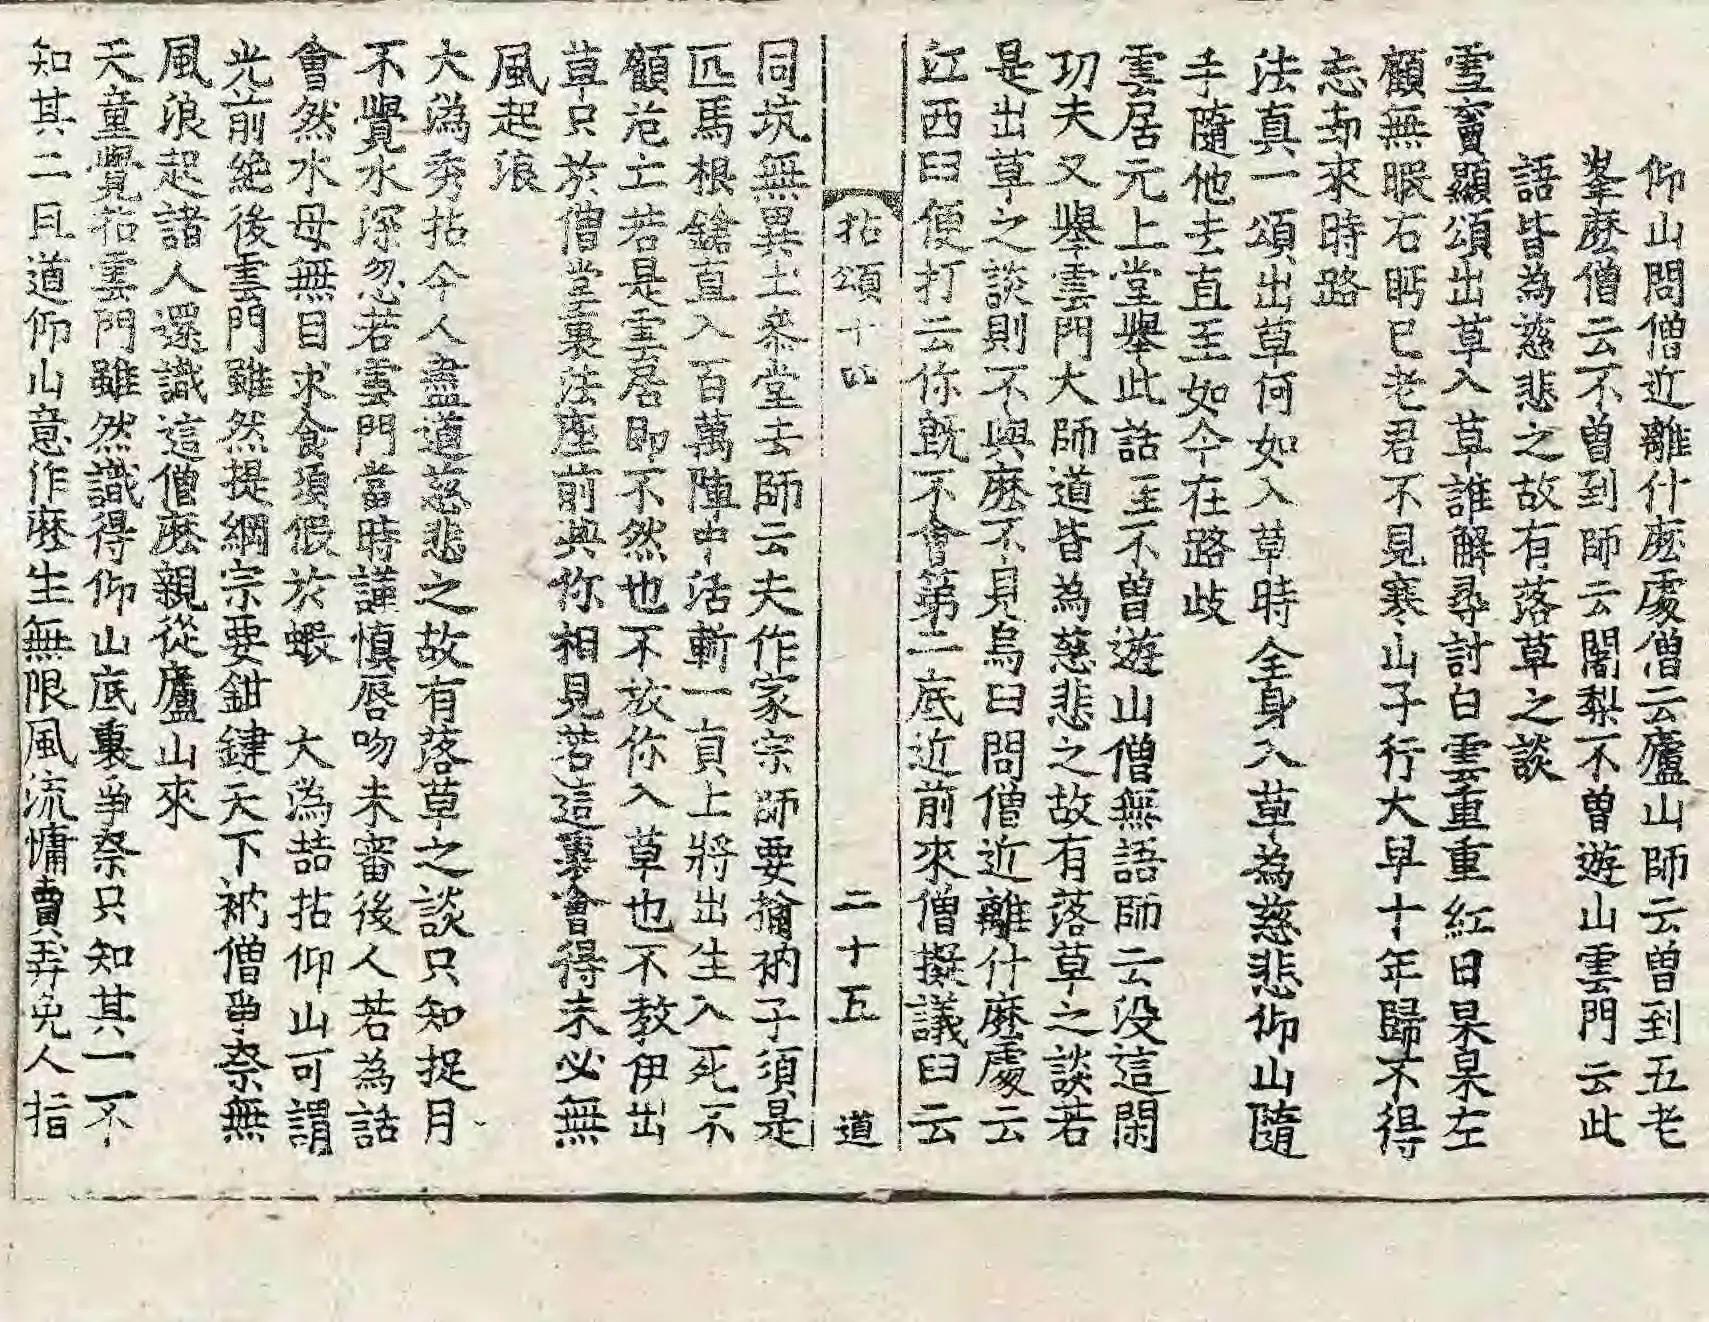 仰山問僧近離什麽處僧云廬山師云曾到五老
峯麽僧云不曾到師云闍梨不曾遊山雲門云此
語皆為慈悲之故有落草之談
雪竇顯頌出草入草誰解尋討白雲重重紅日杲杲左
顧無暇右眄已老君不見寒山子行大早十年歸不得
忘却來時路
法真一頌出草何如入草時全身入草為慈悲仰山隨
手隨他去直至如今在路歧
雲居元上堂擧此話至不曾遊山僧無語師云没這閑
功夫又擧雲門大師道皆為慈悲之故有落草之談若
是出草之談則不與麽不見烏臼問僧近離什麽處云
江西臼便打云你既不會第二底近前來僧擬議臼云
拈頌十四 二十五 道
同坑無異土叅堂去師云夫作家宗師要搚衲子須是
匹馬根鎗直入百萬陣中活斬一員上將出生入死不
顧危亡若是雲居即不然也不放你入草也不教伊出
草只於僧堂裏法座前與你相見若這裏會得未必無
風起浪
大潙秀拈今人盡道慈悲之故有落草之談只知捉月
不覺水深忽若雲門當時謹慎唇吻未審後人若為話
會然水母無目求食須假於蝦 大潙喆拈仰山可謂
光前絶後雲門雖然提綱宗要鉗鍵天下衲僧爭柰無
風浪起諸人還識這僧麽親從廬山來
天童覺拈雲門雖然識得仰山底裏爭柰只知其一不
知其二且道仰山意作麽生無限風流慵賣弄免人指